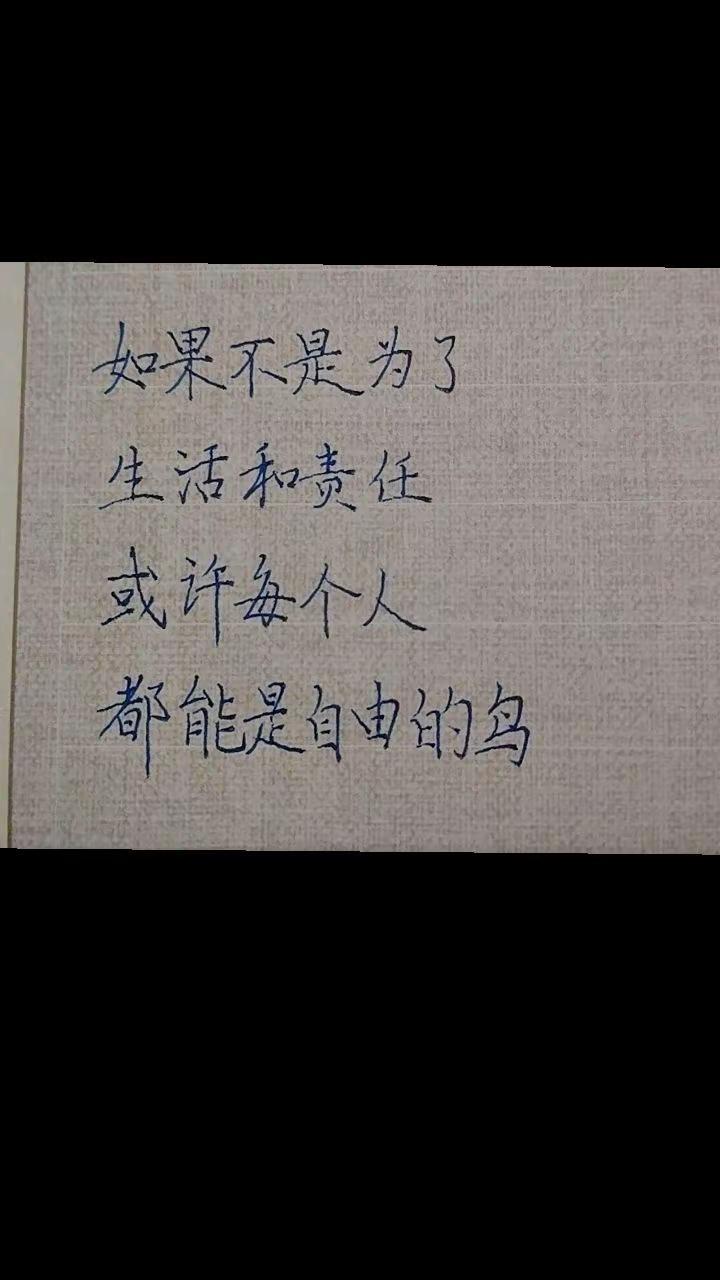 如果不是为了
生活和责任
或许每个人
都能是自由的鸟